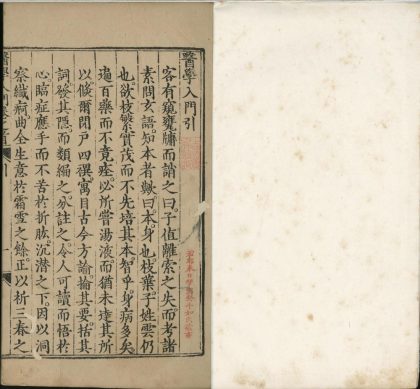 醫學入門引
客有窺甕牖而誚之曰子值離索之失而考諸
素問玄語知本者歟曰本身也枝葉子姓雲仍
也欲枝繁實茂而不先培其本智乎身病多矣
遍百藥而不竟痊必所嘗湯液而猶未達其所
以倐爾閉戶四禩寓目古今方論掄其要括其
詞發其隱而類編之分註之令人可讀而悟於
心臨症應手而不苦於折肱沉潛之下因以洞
察纖痾曲全生意於霜雪之餘正以祈三春之